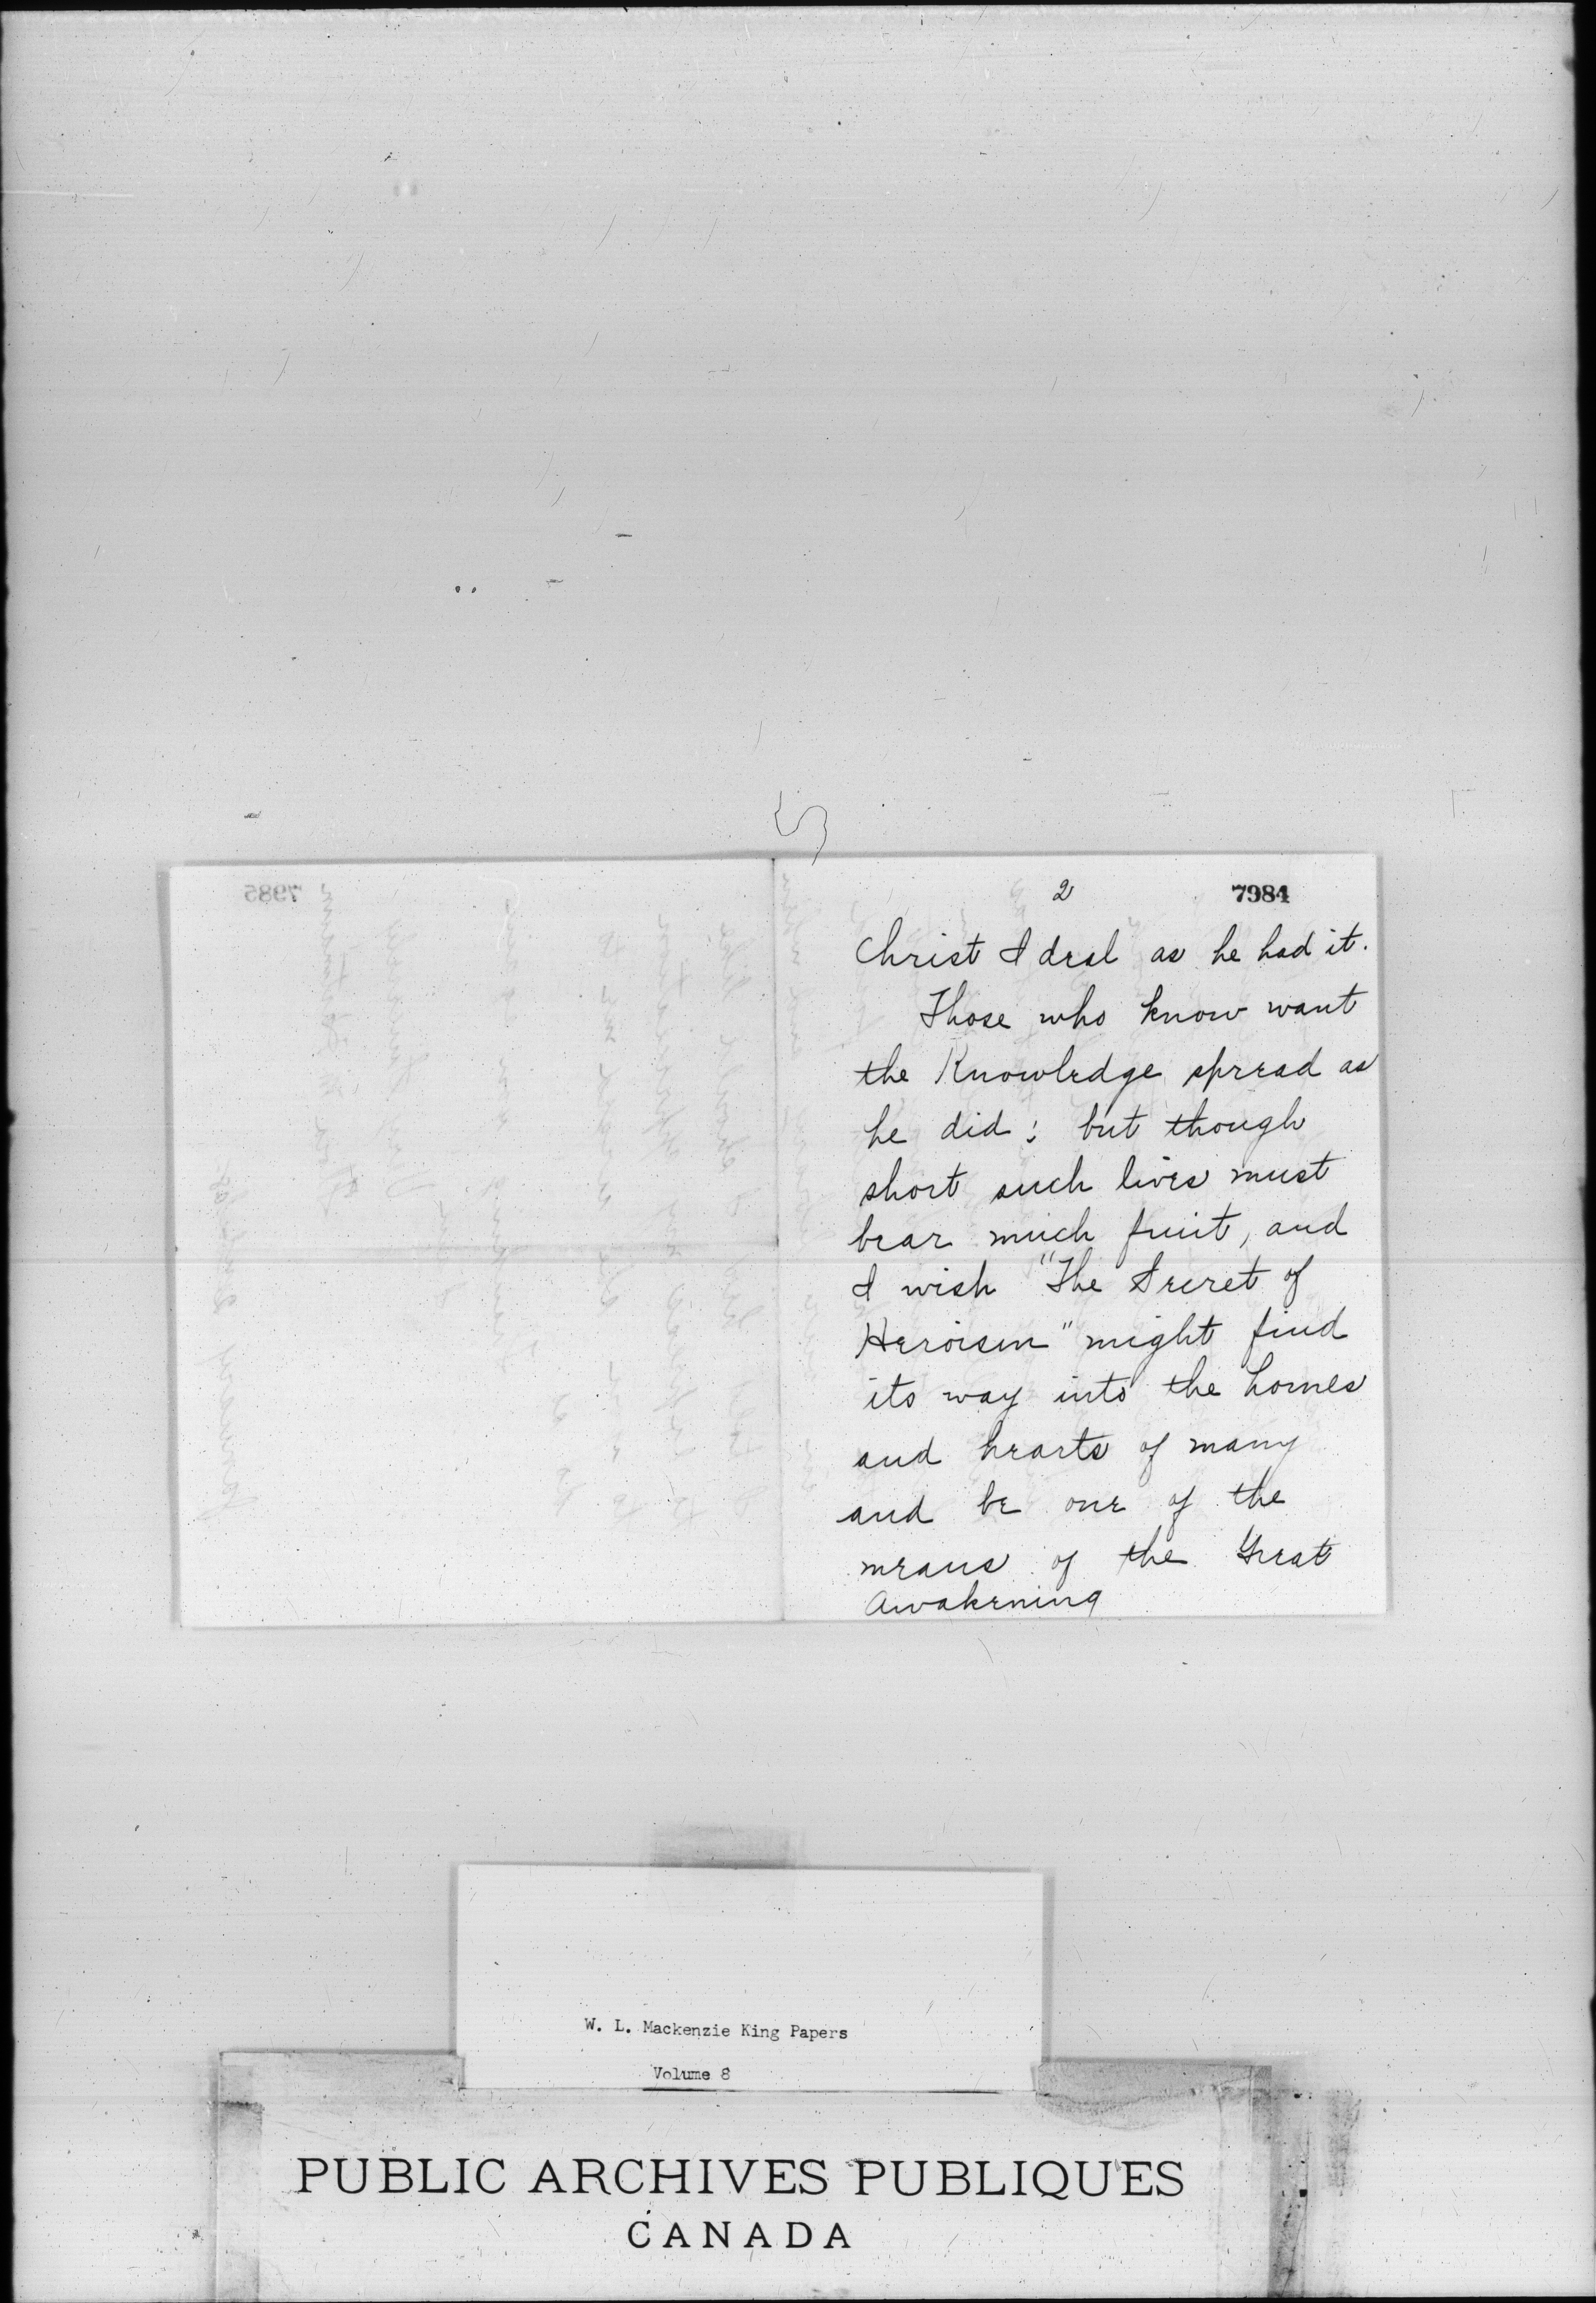 2
7984
Christ Ideal as he had it.
Those who know want
the Knowledge spread as
he did; but though
short such lives must
bear much fruit, and
I wish "The Secret of
Heroism" might find
its way into the homes
and hearts of many
and be one of the
means of the Great
Awakening
7985
W. L. Mackenzie King Papers
Volume 8
PUBLIC ARCHIVES PUBLIQUES
CANADA